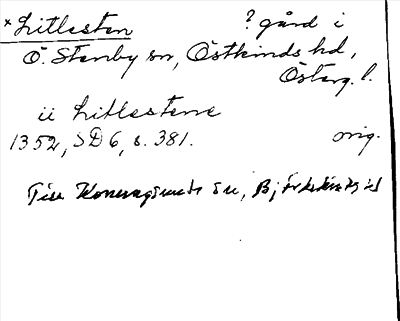 *Litlesten ? gård i
Ö. Stenby sn, Östkinds hd,
Österg. l.
ii Litlestene
1352, SD 6, s. 381. orig.
Till Konungsunds sn, Björkekinds hd